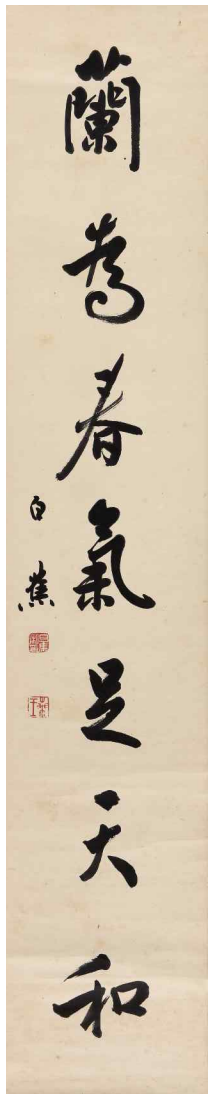 蘭為春氣足天和
白蕉